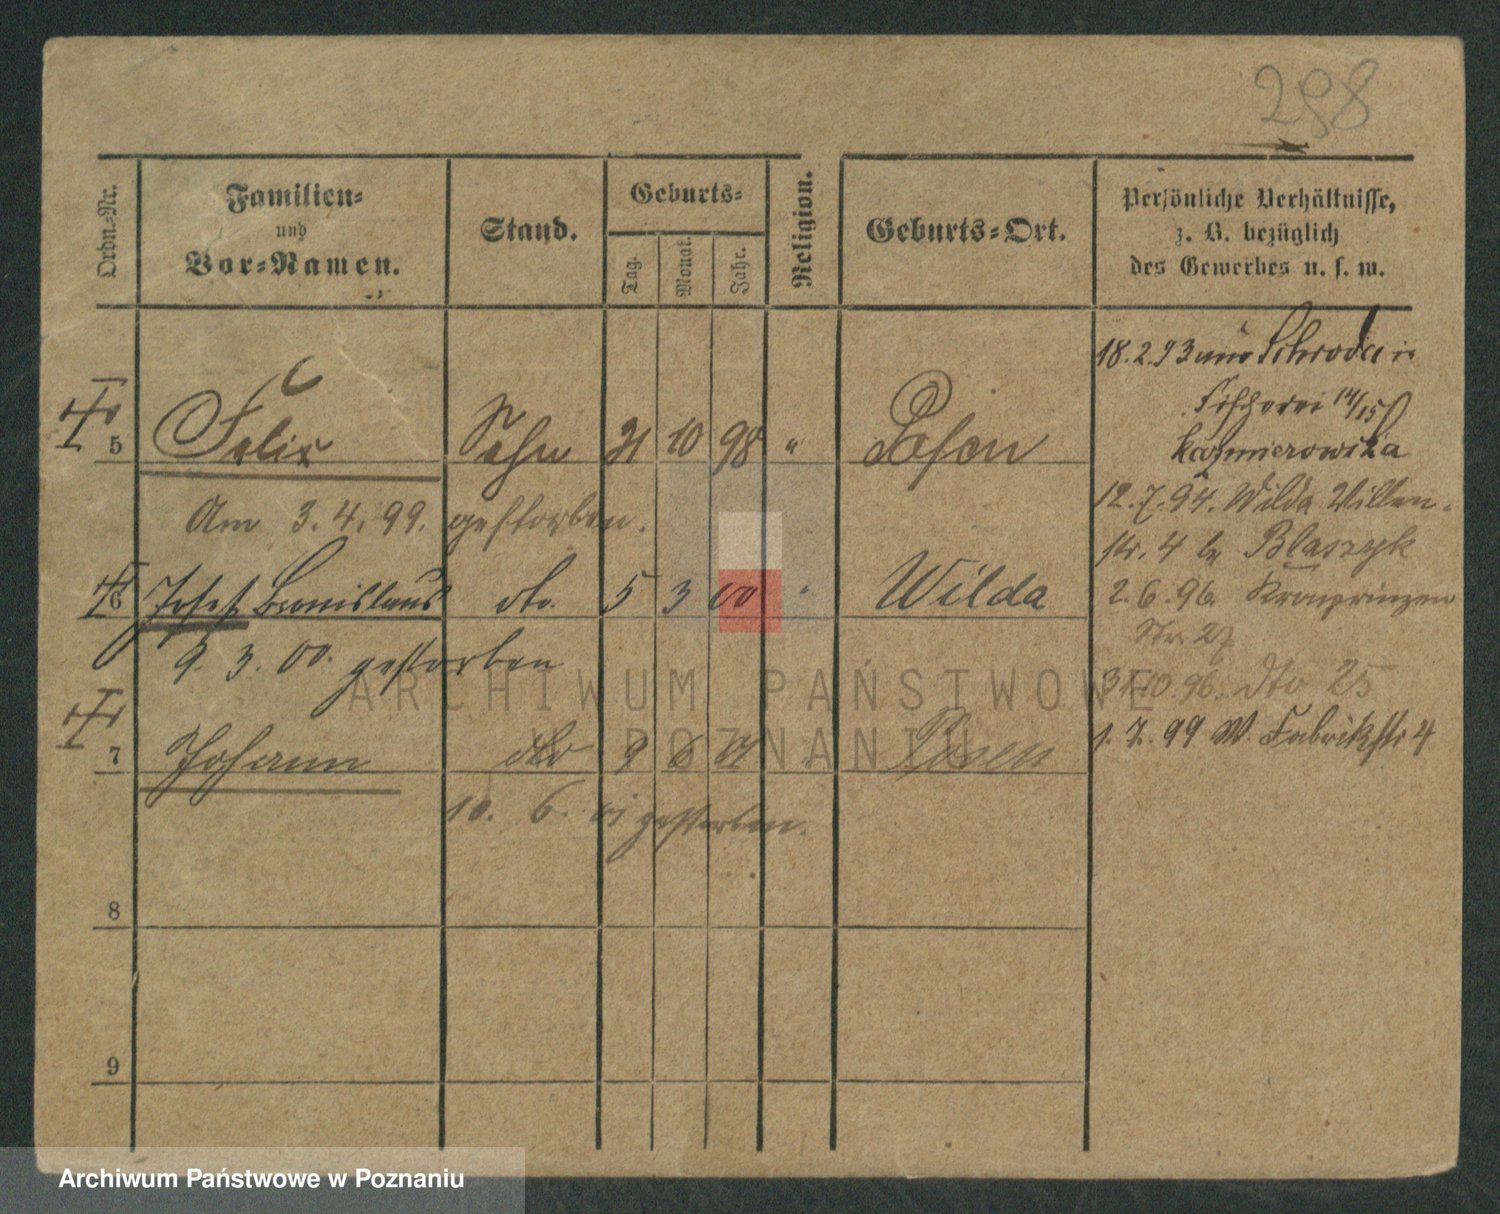 298
Ordn.-Nr.
Familien-
und
Vor-Namen.
Stand.
Geburts-
Tag.
Monat.
Jahr.
Religion.
Geburts-Ort.
Persönliche Verhältnisse,
z. B. bezüglich
des Gewerbes u. s. w.
5 Felix Sohn 21 10 98 " Posen
Am 3.4.99. gestorben.
6 Josef Bronislaus dto. 5 3 00 " Wilda
9. 3. 00. gestorben
7 Johann dto 9 6 01 " Posen
10. 6. 01 gestorben.
8
9
18.2.93 aus Schroda in
Fischerei 14/15
Kazmierowska
12.7.94. Wilda Villen-
str. 4 b. Blaszyk
2.6.96. Kronprinzen
Str. 27
31.10.96. dto 25
1.7.99 W. Fabrikstr 4
ARCHIWUM PAŃSTWOWE
W POZNANIU
Archiwum Państwowe w Poznaniu